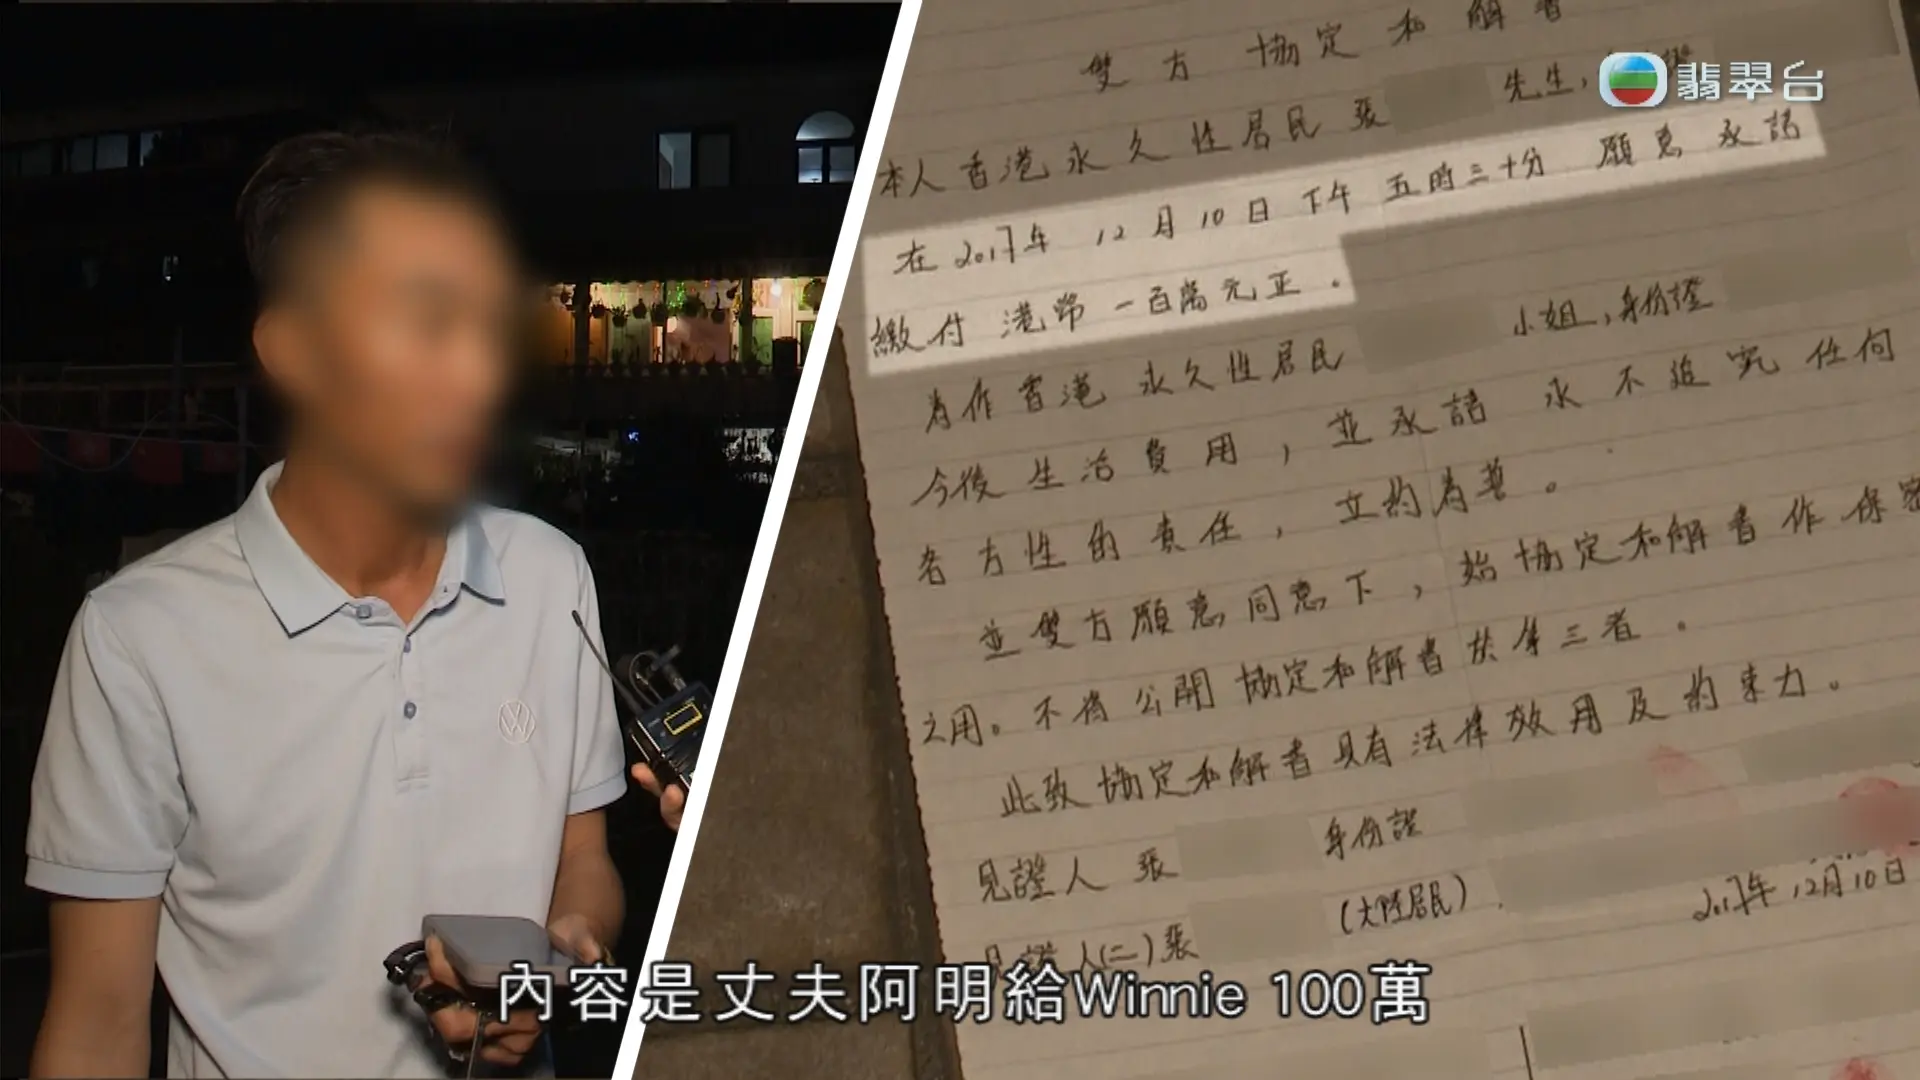 翡翠台
雙方協定和解書
本人香港永久性居民張 先生,
在2017年12月10日下午五時三十分 願意承諾
繳付港幣一百萬元正.
小姐,身份證
為作香港永久性居民
今後生活費用,並承諾永不追究任何
各方性的責任,立約為善。
並雙方願意同意下,始協定和解書作保密
之用。不得公開協定和解書於第三者.
此致協定和解書具有法律效用及約束力。
見證人 張 身份證
(大陸居民).
2017年12月10日
見證人(二)張
內容是丈夫阿明給Winnie 100萬